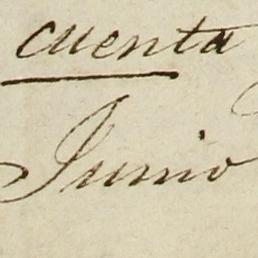 cuenta
Junio